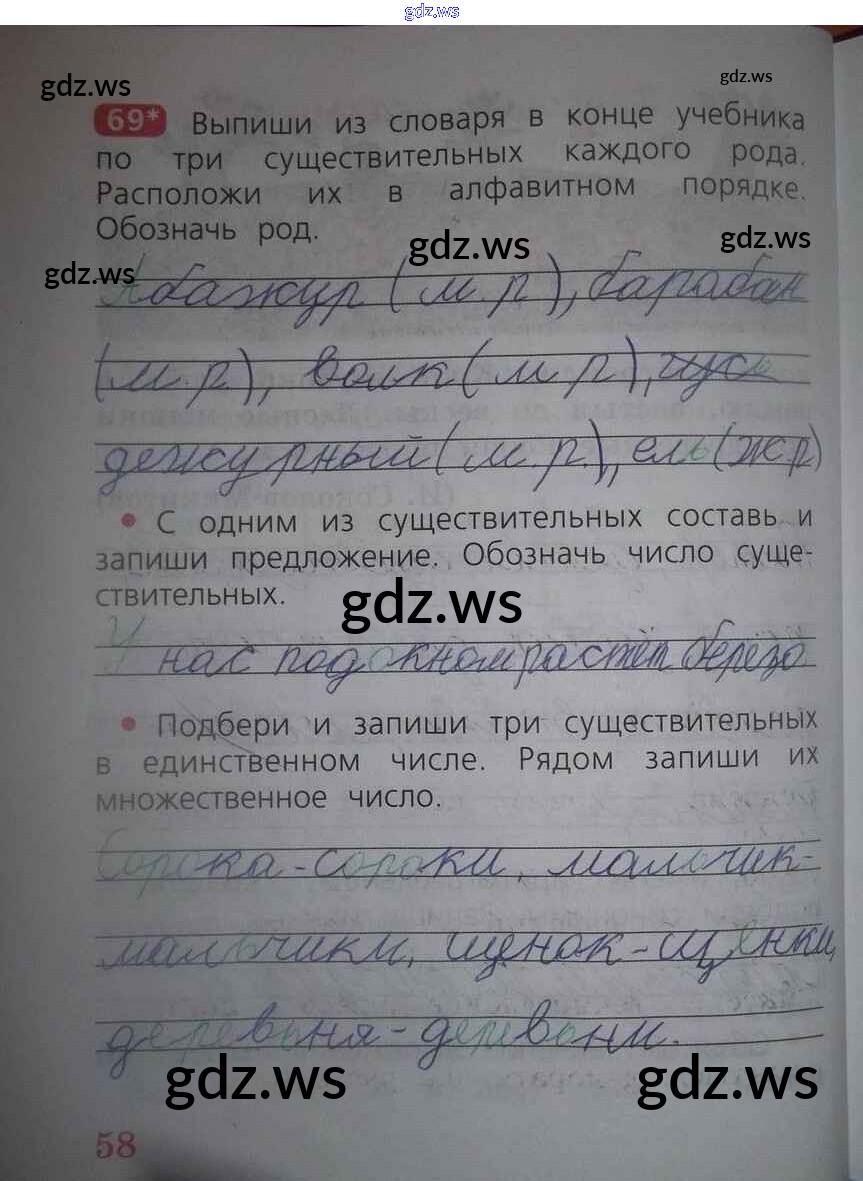 gdz.ws
gdz.ws
gdz.ws
69* Выпиши из словаря в конце учебника
по три существительных каждого рода.
Расположи их в алфавитном порядке.
Обозначь род.
gdz.ws
gdz.ws
gdz.ws
Абажур (м.р), барабан
(м.р), волк (м.р), гусь
дежурный (м.р.), ель (жр)
• С одним из существительных составь и
запиши предложение. Обозначь число суще-
ствительных.
gdz.ws
У нас под окном растёт берёза
• Подбери и запиши три существительных
в единственном числе. Рядом запиши их
множественное число.
Сорока-сороки, мальчик-
мальчики, щенок-щенки,
деревня-деревни.
gdz.ws
gdz.ws
58